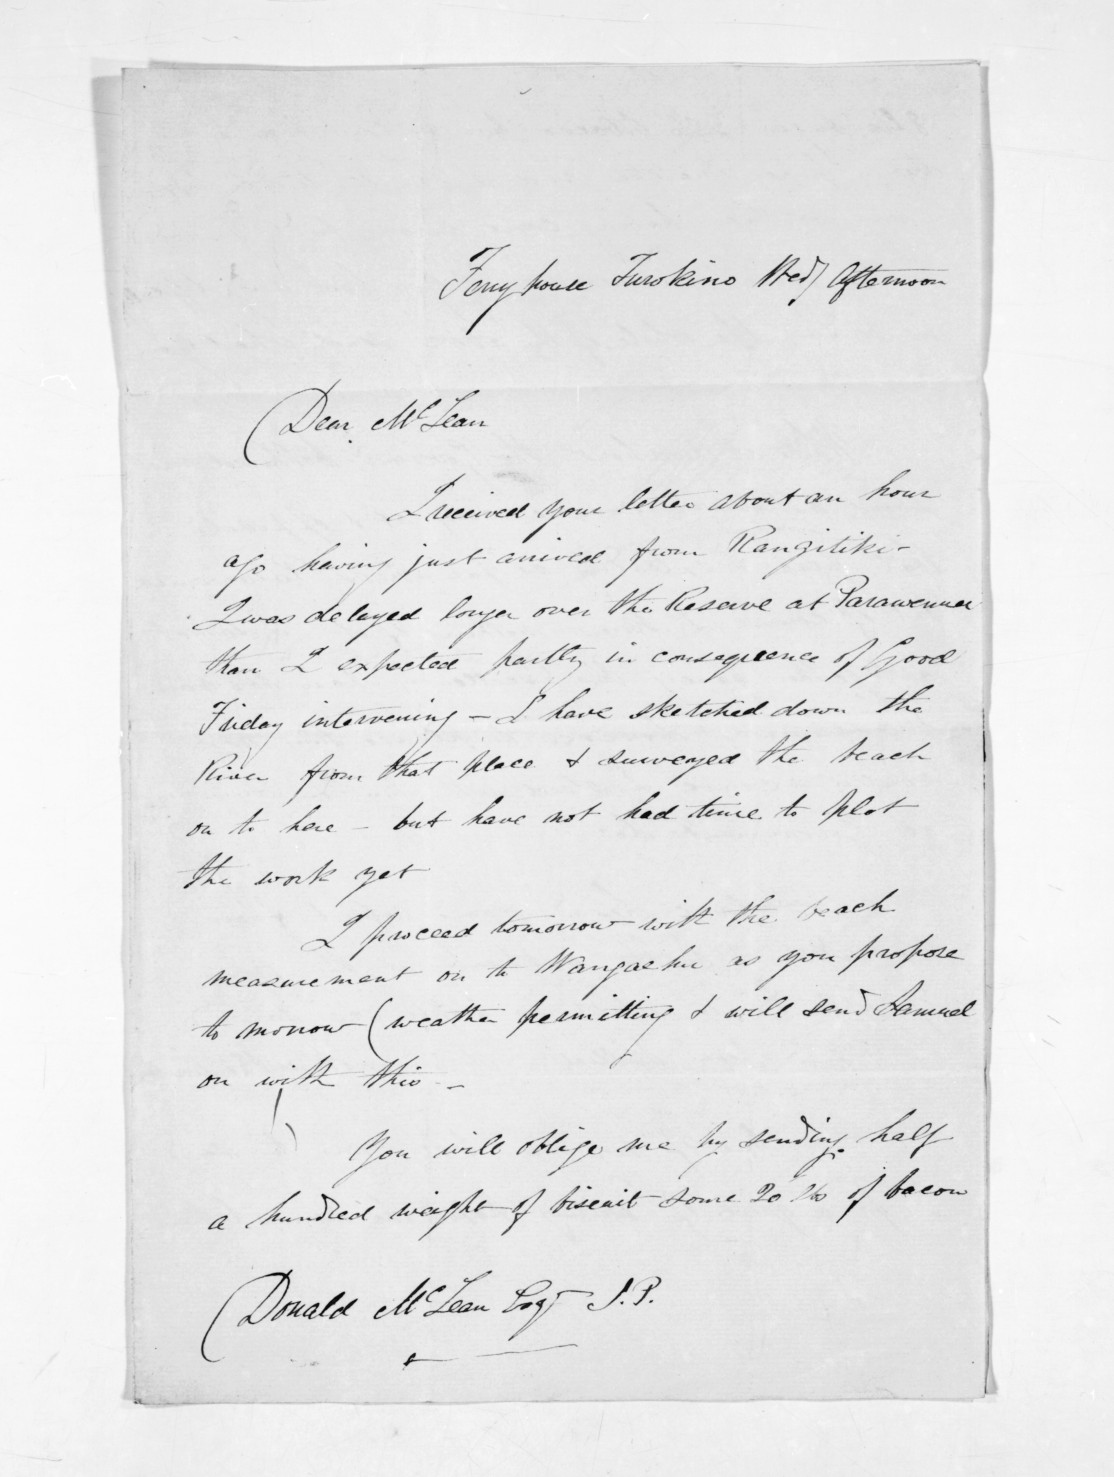 Ferry house Turokino Wedy afternoon
Dear McLean
I received your letter about an hour
ago having just arrived from Rangitiki -
I was delayed longer over the Reserve at Parawenua
than I expected partly in consequence of Good
Friday intervening - I have sketched down the
River from that place & surveyed the beach
on to here - but have not had time to plot
the work yet
I proceed tomorrow with the beach
measurement on to Wangaehu as you propose
to morrow (weather permitting & will send Samuel
on with this -
You will oblige me by sending half
a hundred weight of biscuit some 20 lb of bacon
Donald McLean Esqr J.P.